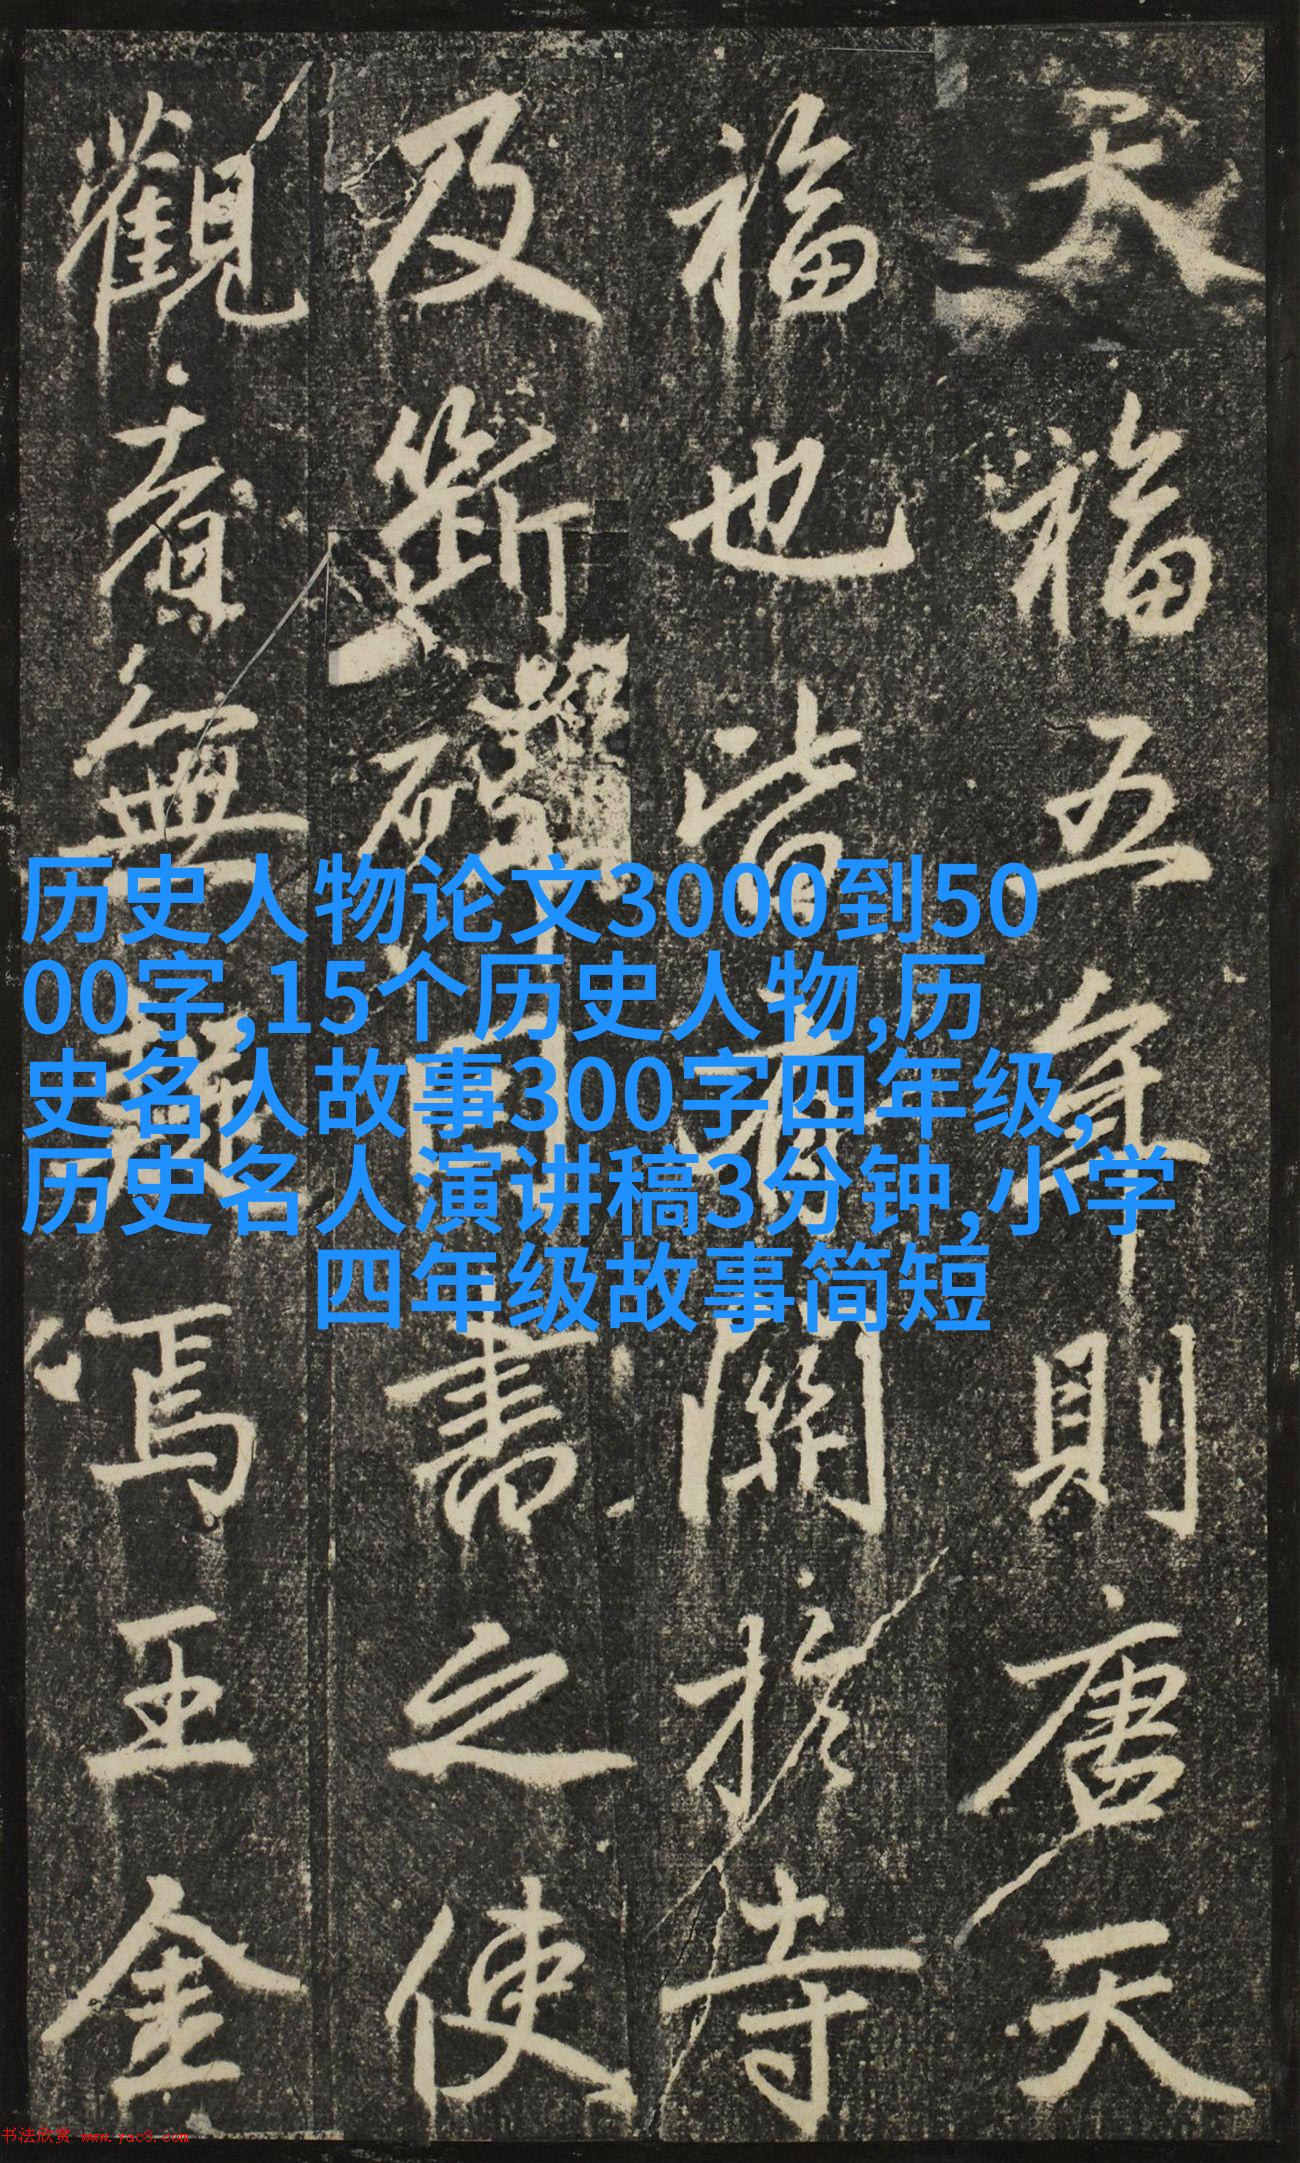 天福五年則唐天
福也皆有關於寺
及斷碑書之使
觀者無疑焉王金
历史人物论文3000到50
00字,15个历史人物,历
史名人故事300字四年级,
历史名人演讲稿3分钟,小学
四年级故事简短
书法欣赏 www.yac8.com